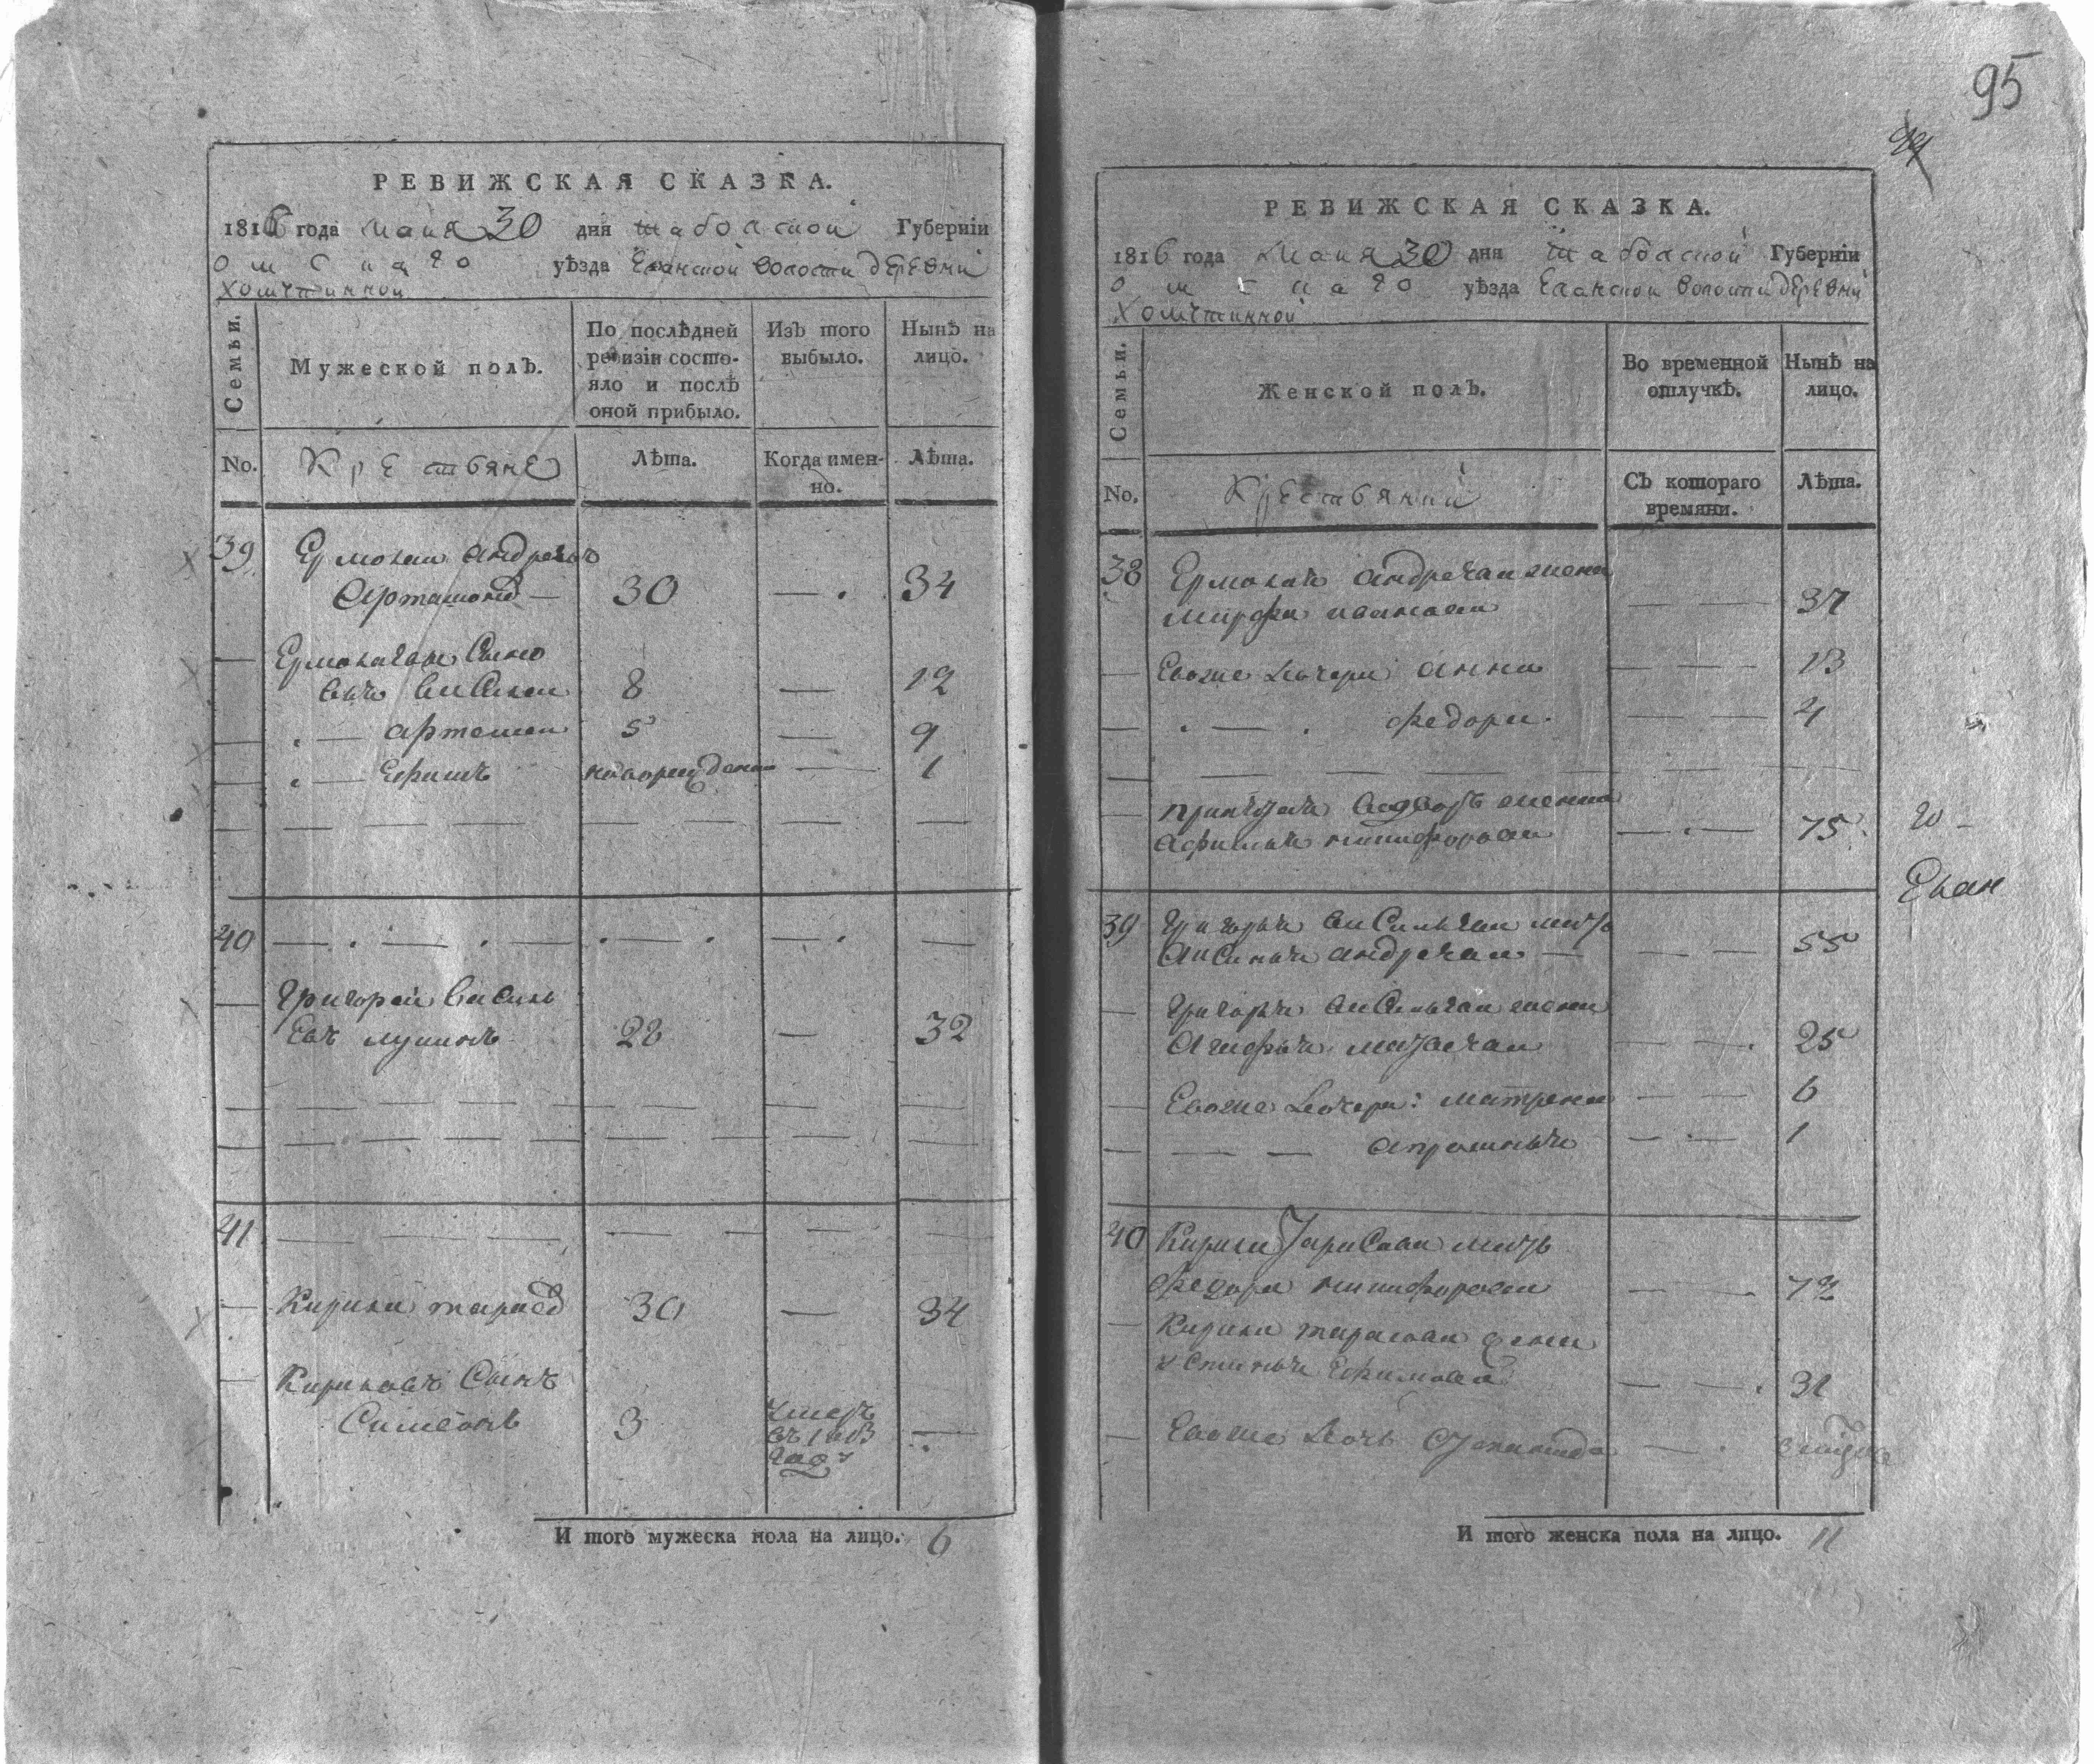 РЕВИЖСКАЯ СКАЗКА.
1816 года Маия 30 дня Тобольской Губерніи
Омскаго уѣзда Еланской волости деревни
Хомутинной
Семьи.
Мужеской полъ.
По послѣдней ревизіи состояло и послѣ оной прибыло.
Изъ того выбыло.
Нынѣ на лицо.
No.
Крестьяне
Лѣта.
Когда именно.
Лѣта.
39 Ермолаи андреевъ
Артамонов — 30 — 34
Ермолаевы Сыно
вья Василеи 8 — 12
артемеи 5 — 9
Ефимъ новорожден — 1
40
Григореи Василь
евъ лунинъ 28 — 32
41
Кирила тарасов 30 — 34
Кириловъ Сынъ
Симеонъ 3 умеръ —
въ 1813
году
И того мужеска пола на лицо. 6
95
РЕВИЖСКАЯ СКАЗКА.
1816 года Маия 30 дня Тобольской Губерніи
Омскаго уѣзда Еланской волости деревни
Хомутинной
Семьи.
Женской полъ.
Во временной отлучкѣ.
Нынѣ на лицо.
No.
Крестьянки
Съ котораго времяни.
Лѣта.
38 Ермолая андреева жена
марфа иванова — — 37
Евоже дочери анна — — 13
федора — — 4
вдова
никифорова — 75
39 Григорья Васильева мать
Аксинья андреева — — 55
Григорья Васильева жена
Агафья матвеева — — 25
Евоже дочери: матрена — — 6
апросинья — 1
40 Кирила тарасова мать
Федора никифорова — — 72
Кирила тарасова жена
устинья Ефимова — — 31
Евоже дочь
И того женска пола на лицо. 11
Елан